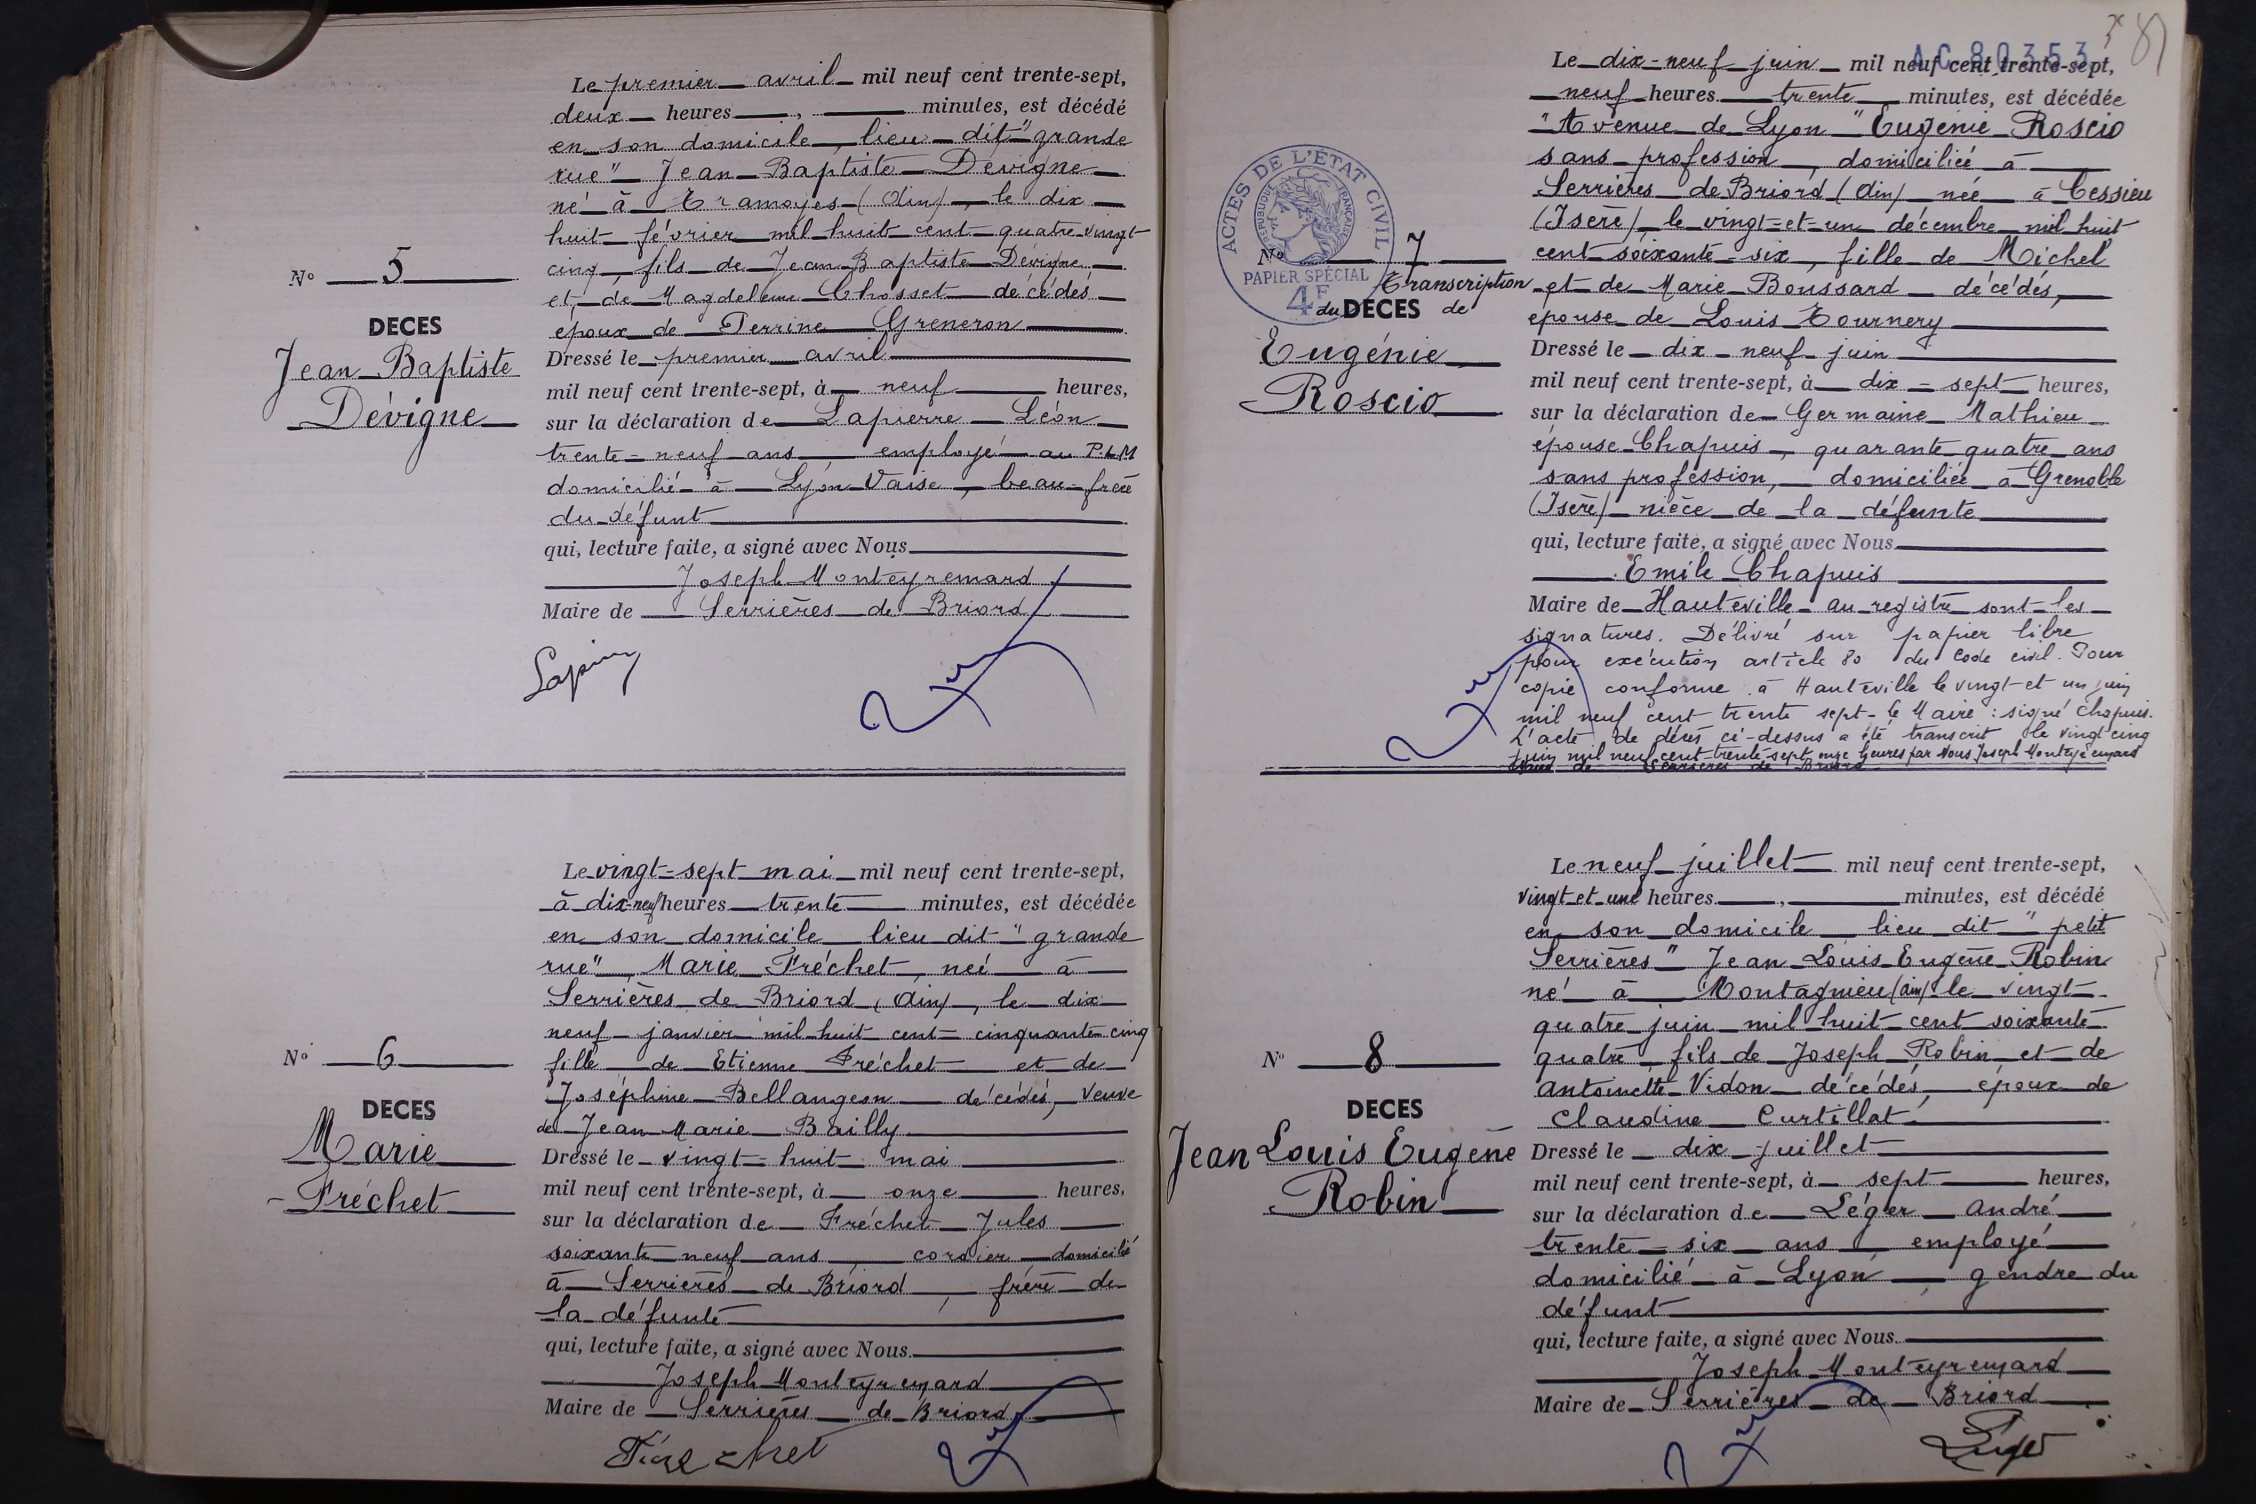 Le premier avril mil neuf cent trente-sept,
deux heures , minutes, est décédé
en son domicile, lieu dit "grande
rue" Jean Baptiste Dévigne
né à Tramoyes (Ain), le dix
huit février mil huit cent quatre vingt
cinq, fils de Jean Baptiste Dévigne
et de Magdeleine Chosset décédés
époux de Perrine Greneron
Dressé le premier avril
mil neuf cent trente-sept, à neuf heures,
sur la déclaration de Lapierre Léon
trente-neuf ans employé au P.L.M
domicilié à Lyon Vaise, beau-frère
du défunt
qui, lecture faite, a signé avec Nous
Joseph Monteyremard
Maire de Serrières de Briord
N° 5
DECES
Jean Baptiste
Dévigne
Le vingt-sept mai mil neuf cent trente-sept,
à dix-neuf heures trente minutes, est décédée
en son domicile lieu dit "grande
rue", Marie Fréchet, née à
Serrières de Briord (Ain), le dix
neuf janvier mil huit cent cinquante cinq
fille de Etienne Fréchet et de
Joséphine Bellangeon décédés, veuve
de Jean Marie Bailly
Dressé le vingt-huit mai
mil neuf cent trente-sept, à onze heures,
sur la déclaration de Fréchet Jules
soixante neuf ans cordier domicilié
à Serrières de Briord, frère de
la défunte
qui, lecture faite, a signé avec Nous
Joseph Monteyremard
Maire de Serrières de Briord
N° 6
DECES
Marie
Fréchet
AC 80353
Le dix-neuf juin mil neuf cent trente-sept,
neuf heures trente minutes, est décédée
"Avenue de Lyon" Eugénie Roscio
sans profession, domiciliée à
Serrières de Briord (Ain) née à Cessieu
(Isère) le vingt-et-un décembre mil huit
cent soixante-six, fille de Michel
et de Marie Boussard décédés,
épouse de Louis Tournery
Dressé le dix-neuf juin
mil neuf cent trente-sept, à dix-sept heures,
sur la déclaration de Germaine Mathieu
épouse Chapuis, quarante quatre ans
sans profession, domiciliée à Grenoble
(Isère) nièce de la défunte
qui, lecture faite, a signé avec Nous
Emile Chapuis
Maire de Hauteville au registre sont les
signatures. Délivré sur papier libre
pour exécution article 80 du code civil. Pour
copie conforme à Hauteville le vingt et un juin
mil neuf cent trente sept - le Maire : signé Chapuis.
L'acte de décès ci-dessus a été transcrit le vingt cinq
juin mil neuf cent trente-sept onze heures par Nous Joseph Monteyremard
Maire de Serrières de Briord
ACTES DE L'ÉTAT CIVIL
RÉPUBLIQUE FRANÇAISE
PAPIER SPÉCIAL
4F
N° 7
Transcription
du DECES de
Eugénie
Roscio
Le neuf juillet mil neuf cent trente-sept,
vingt et une heures , minutes, est décédé
en son domicile lieu dit "petit
Serrières" Jean Louis Eugène Robin
né à Montagnieu (Ain) le vingt
quatre juin mil huit cent soixante
quatre fils de Joseph Robin et de
Antoinette Vidon décédés, époux de
Claudine Curtillat
Dressé le dix juillet
mil neuf cent trente-sept, à sept heures,
sur la déclaration de Léger André
trente-six ans employé
domicilié à Lyon, gendre du
défunt
qui, lecture faite, a signé avec Nous
Joseph Monteyremard
Maire de Serrières de Briord
Léger
N° 8
DECES
Jean Louis Eugène
Robin